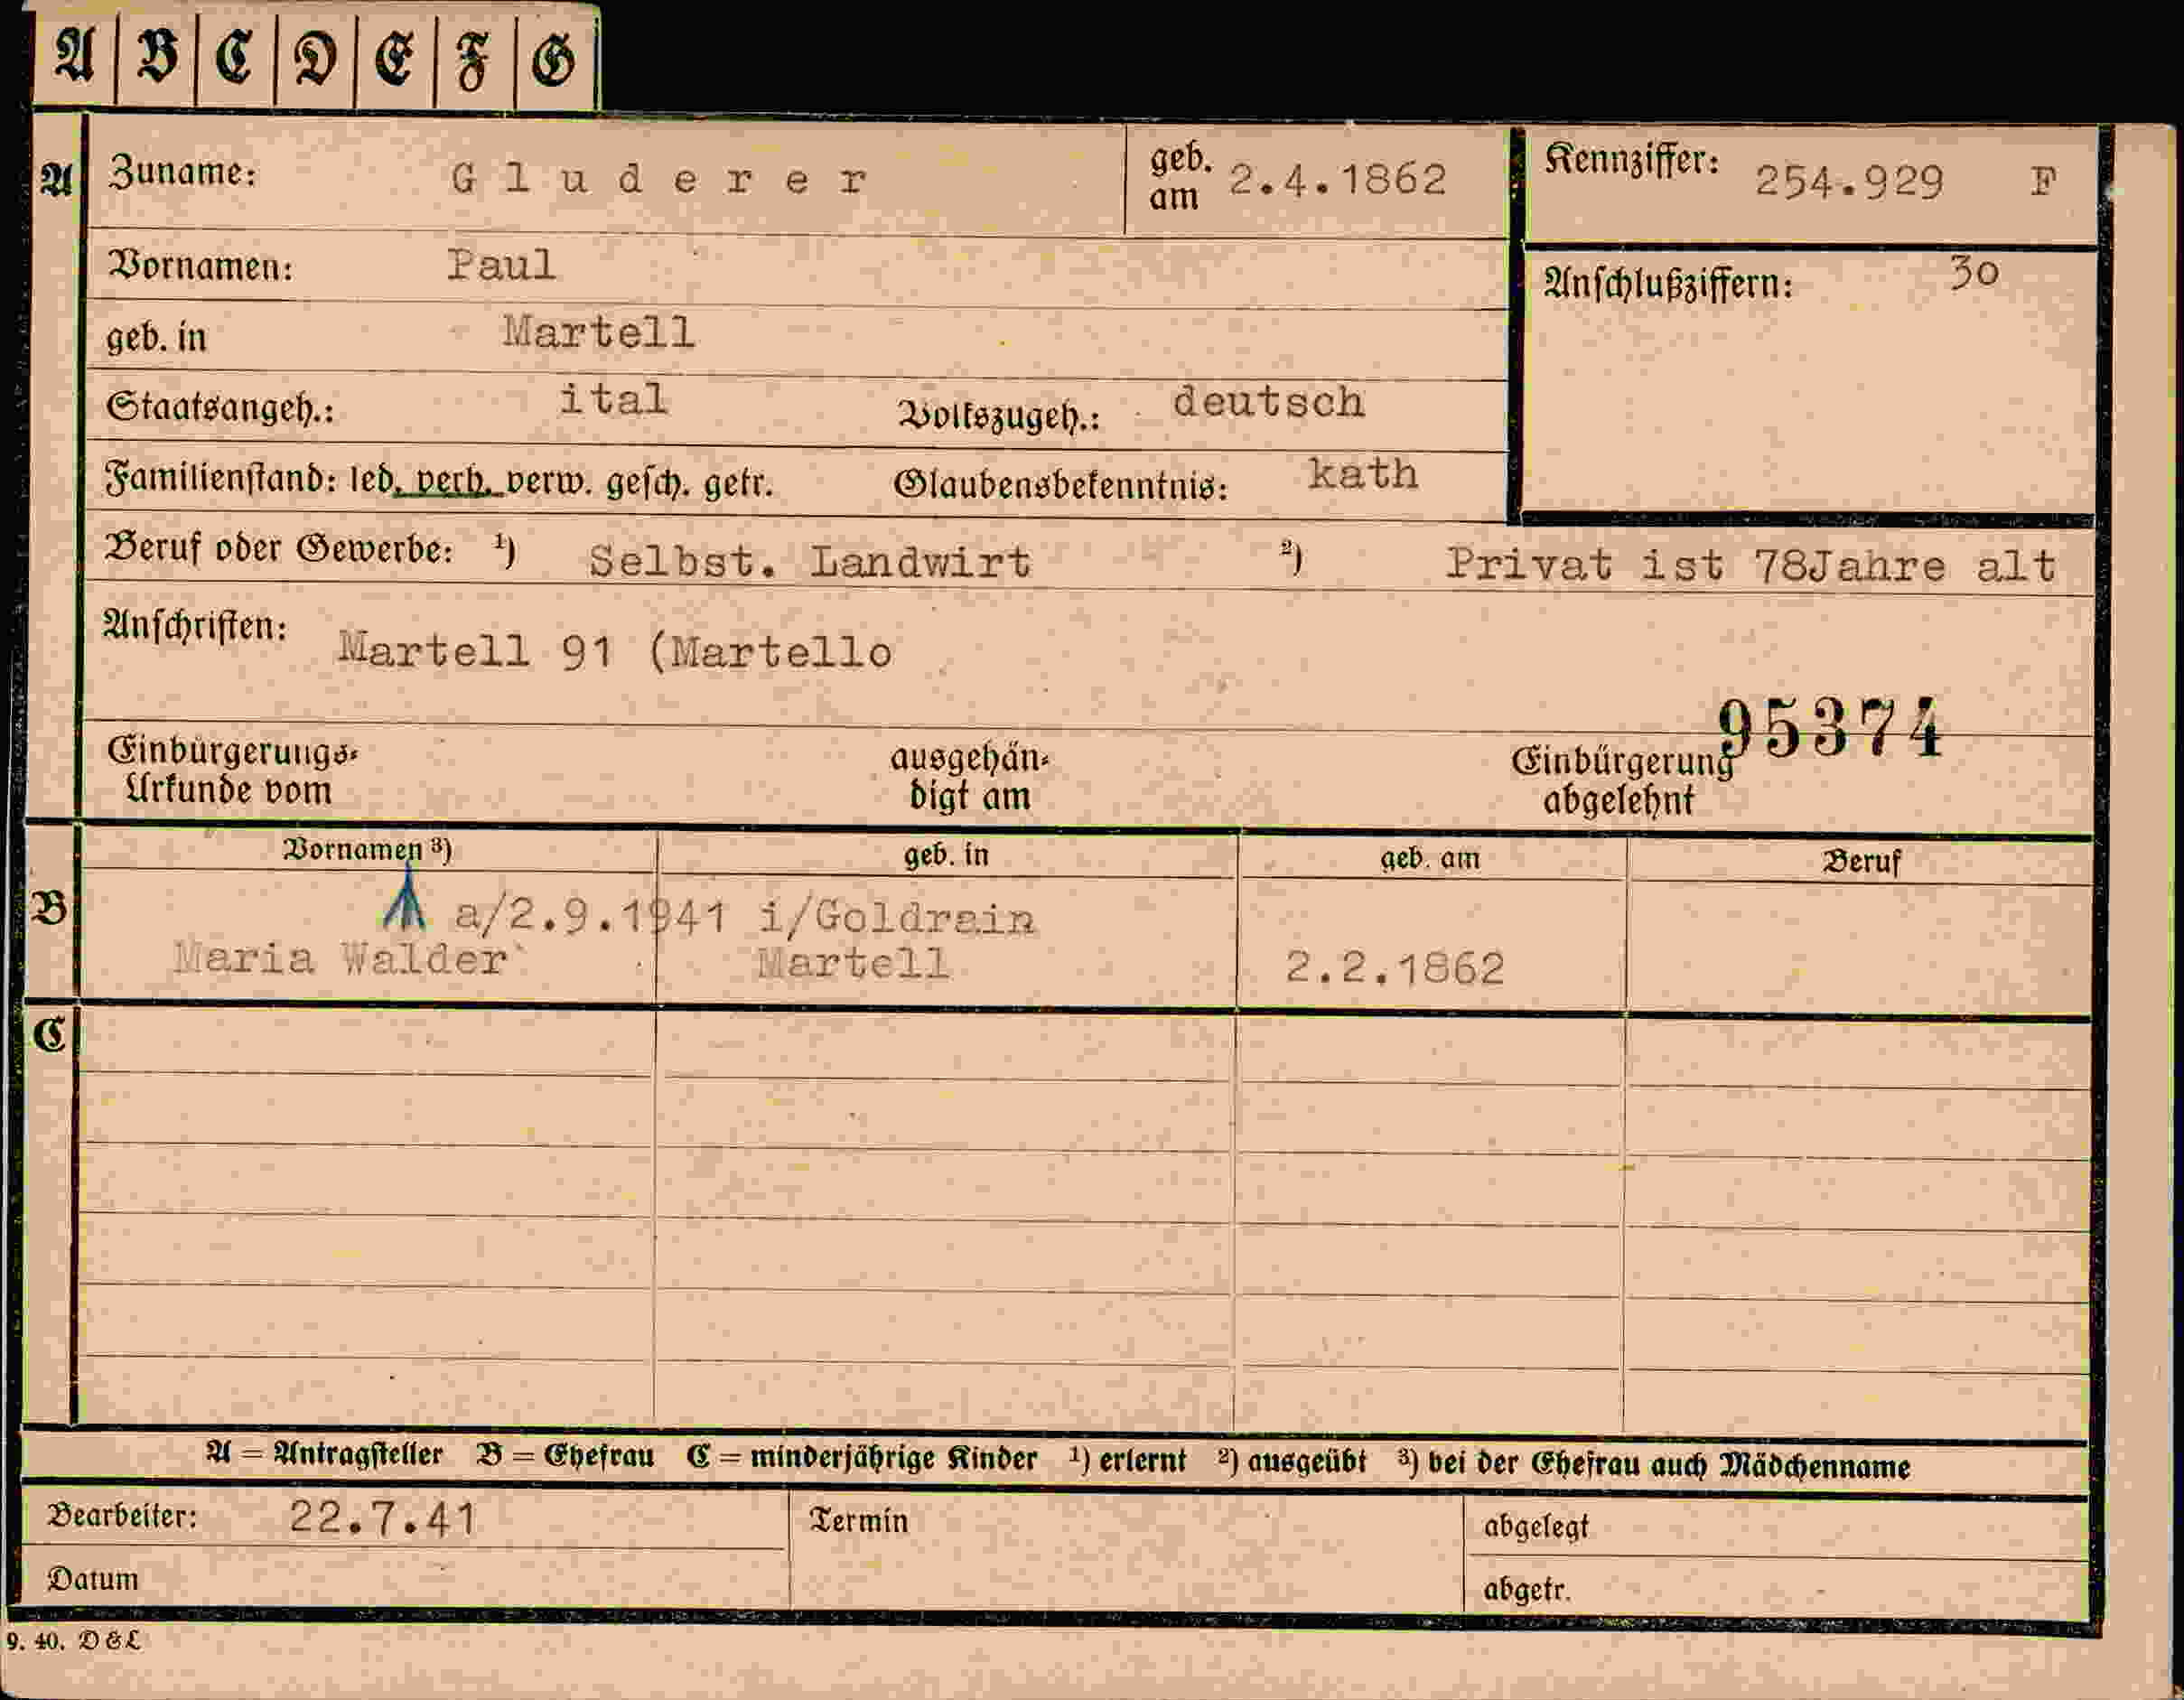 A B C D E F G
A Zuname: Gluderer geb. am 2.4.1862 Kennziffer: 254.929 F
Vornamen: Paul Anschlußziffern: 30
geb. in Martell
Staatsangeh.: ital Volkszugeh.: deutsch
Familienstand: led. verh. verw. gesch. getr. Glaubensbekenntnis: kath
Beruf oder Gewerbe: ¹) Selbst. Landwirt ²) Privat ist 78Jahre alt
Anschriften: Martell 91 (Martello
95374
Einbürgerungs- ausgehän- Einbürgerung
Urkunde vom digt am abgelehnt
Vornamen ³) geb. in geb. am Beruf
B a/2.9.1941 i/Goldrain
Maria Walder Martell 2.2.1862
C
A = Antragsteller B = Ehefrau C = minderjährige Kinder ¹) erlernt ²) ausgeübt ³) bei der Ehefrau auch Mädchenname
Bearbeiter: 22.7.41 Termin abgelegt
Datum abgetr.
9. 40. D & L